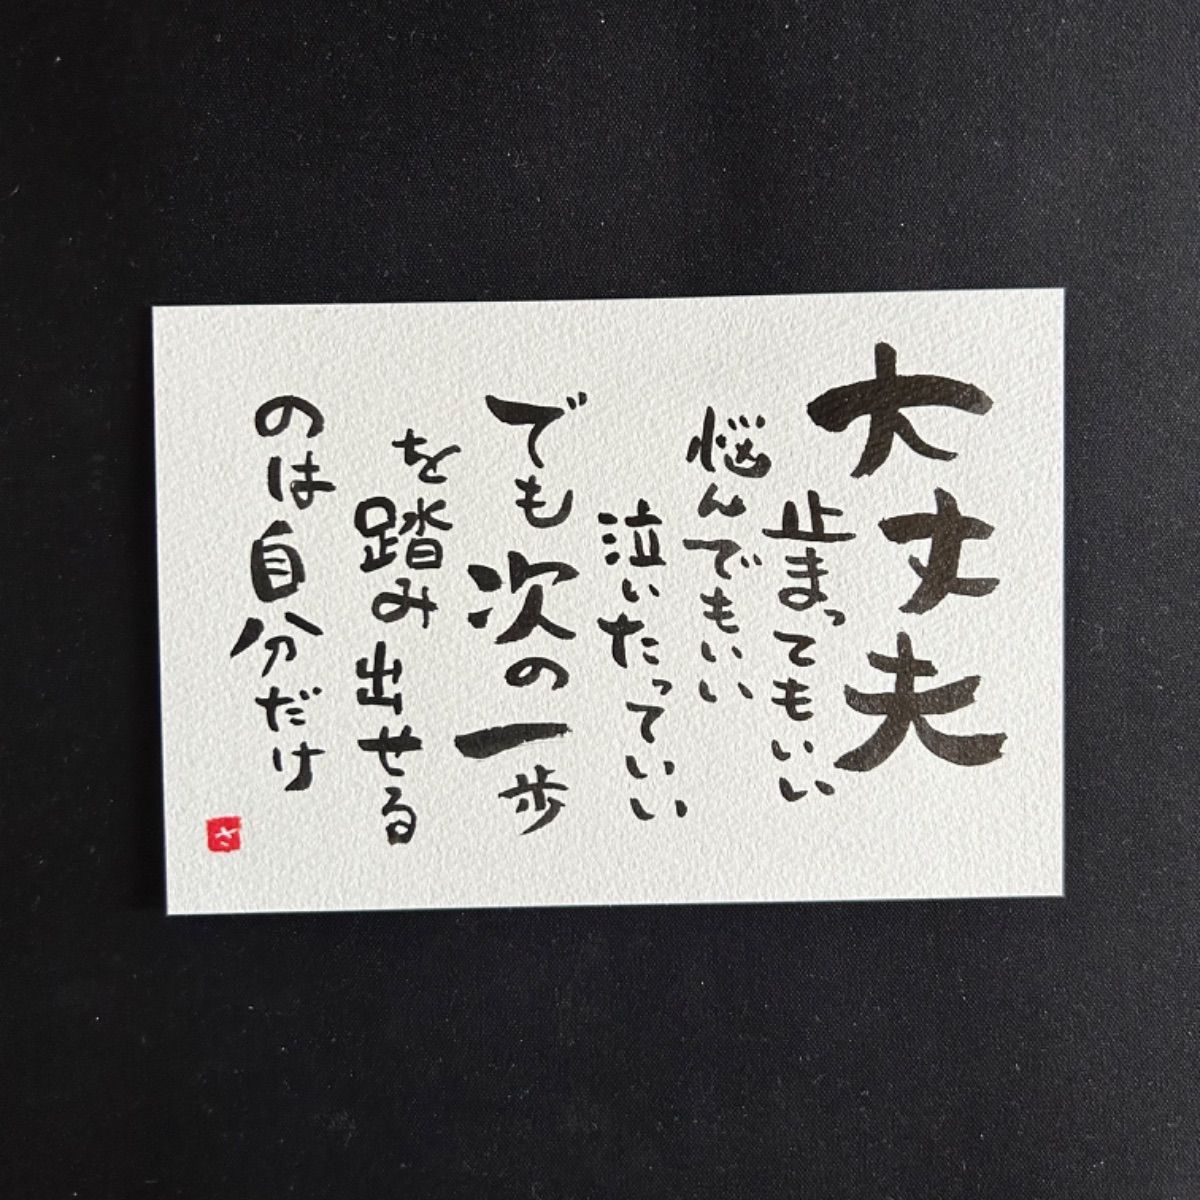 大丈夫
止まってもいい
悩んでもいい
泣いたっていい
でも次の一歩
を踏み出せる
のは自分だけ
さ